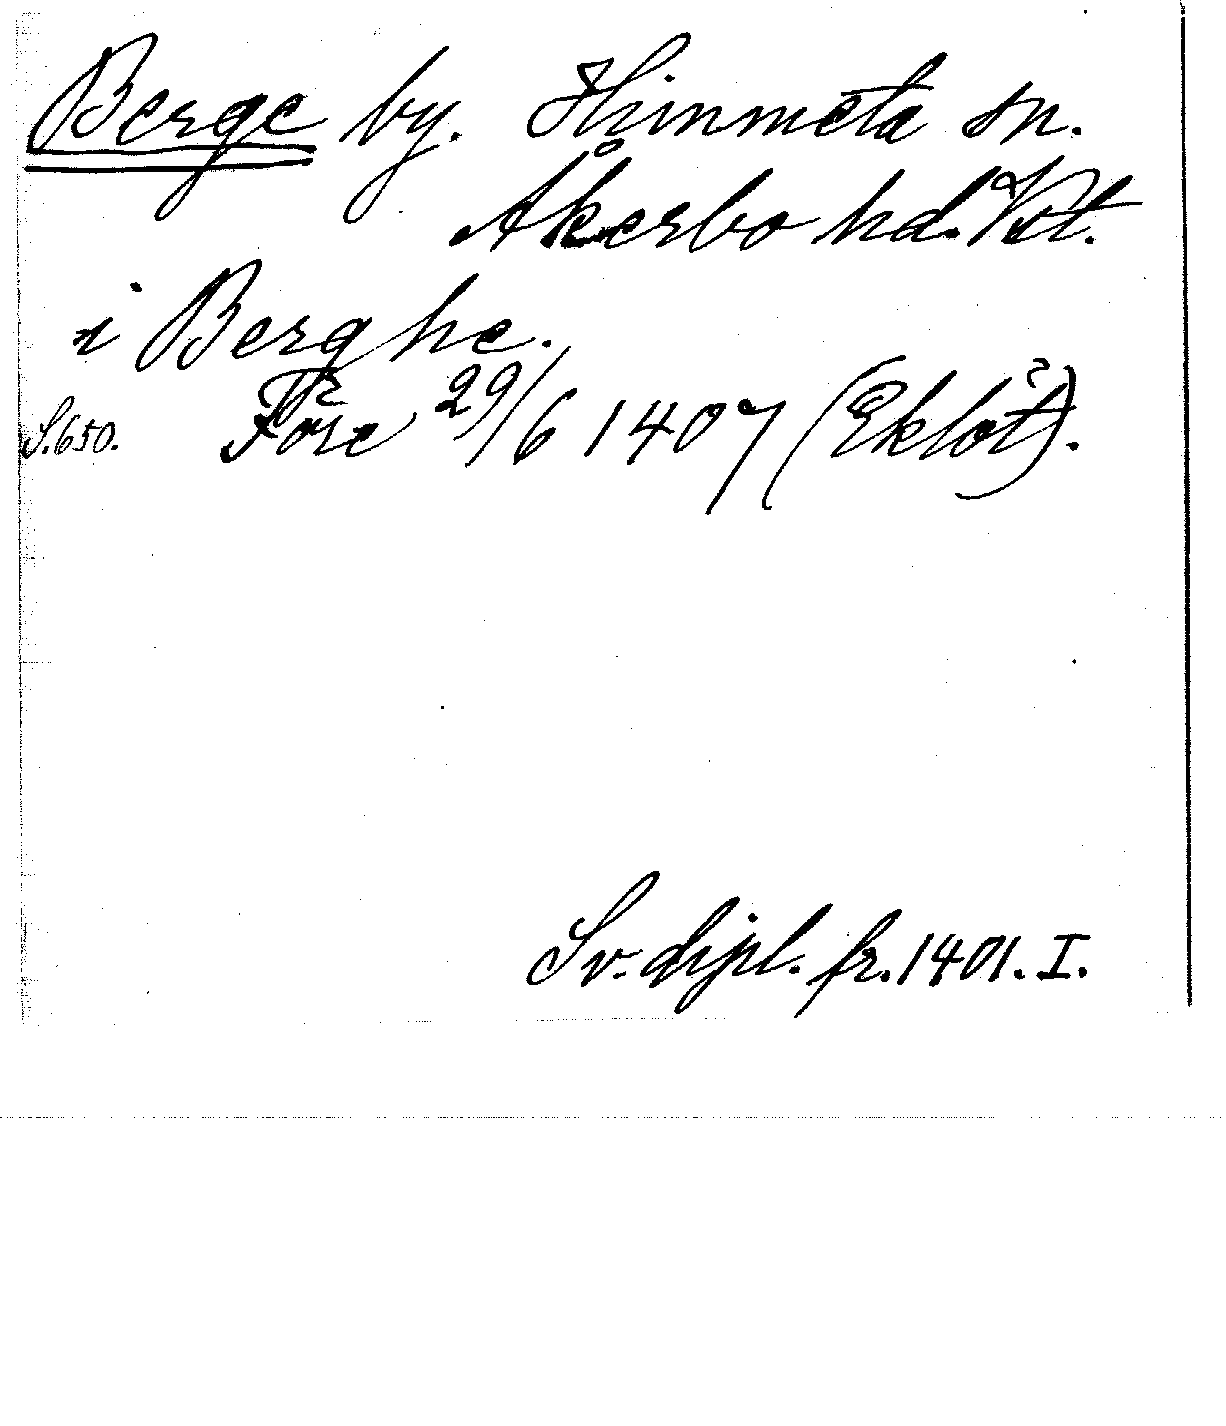 Berge by. Himmeta sn.
Åkerbo hd. Vstl.
i Berghe.
S. 650. Före 29/6 1407 (Eklöt?).
Sv. dipl. fr. 1401. I.